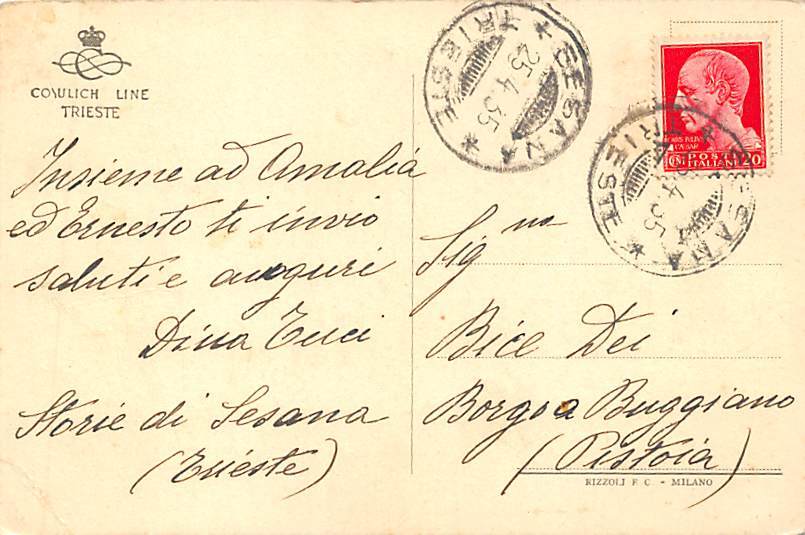 COSULICH LINE
TRIESTE
SESANA
* TRIESTE *
25.4.35
POSTE
ITALIANE
20
SESANA
* TRIESTE *
4 35
Insieme ad Amalia
ed Ernesto ti invio
saluti e auguri
Dina Tuci
Storie di Sesana
(Trieste)
Sig na
Bice Dei
Borgo a Buggiano
(Pistoia)
RIZZOLI F. C. - MILANO